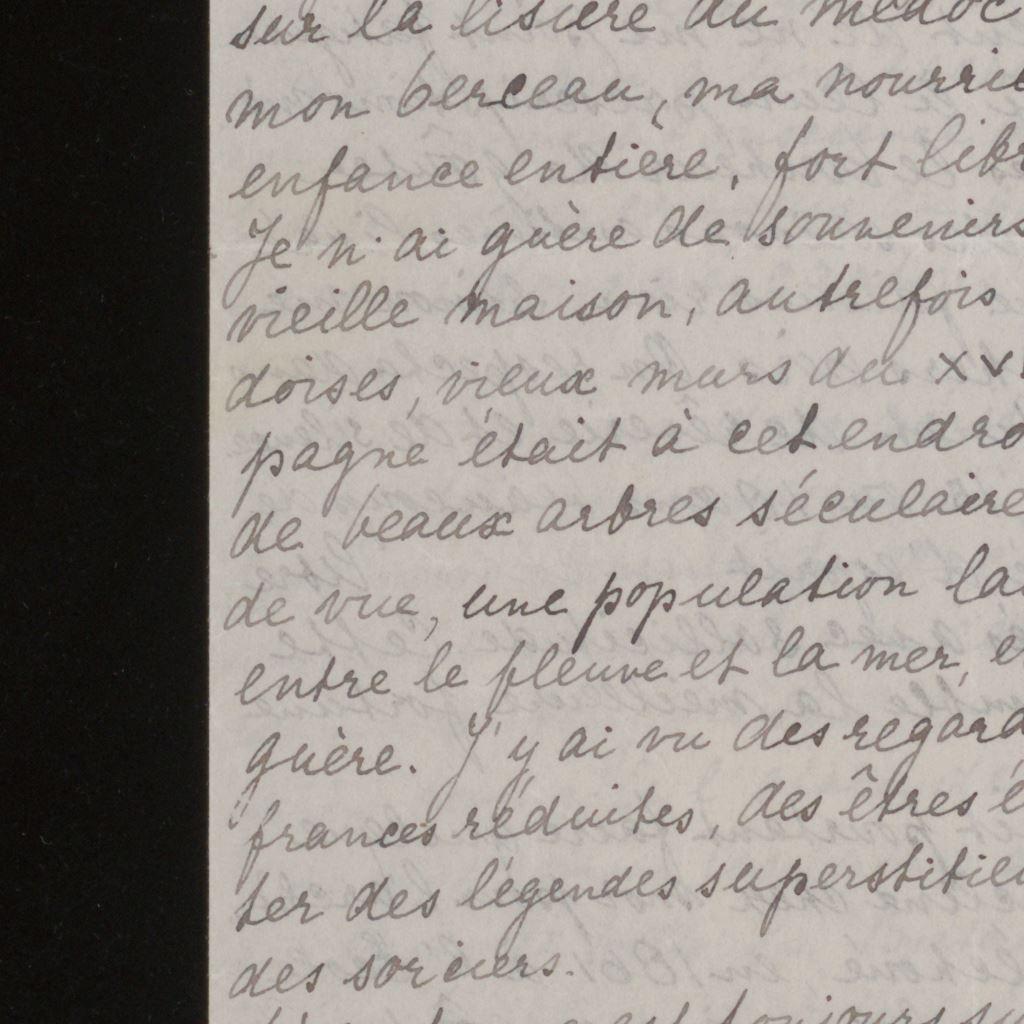 sur la lisière du médoc
mon berceau, ma nourric
enfance entière, fort libr
Je n'ai guère de souvenirs
vieille maison, autrefois
doises, vieux murs du XVI
pagne était à cet endro
de beaux arbres séculaire
de vue, une population la
entre le fleuve et la mer, e
guère. J'y ai vu des regard
frances réduites, des êtres é
ter des légendes superstitieu
des sorciers.
est toujours su